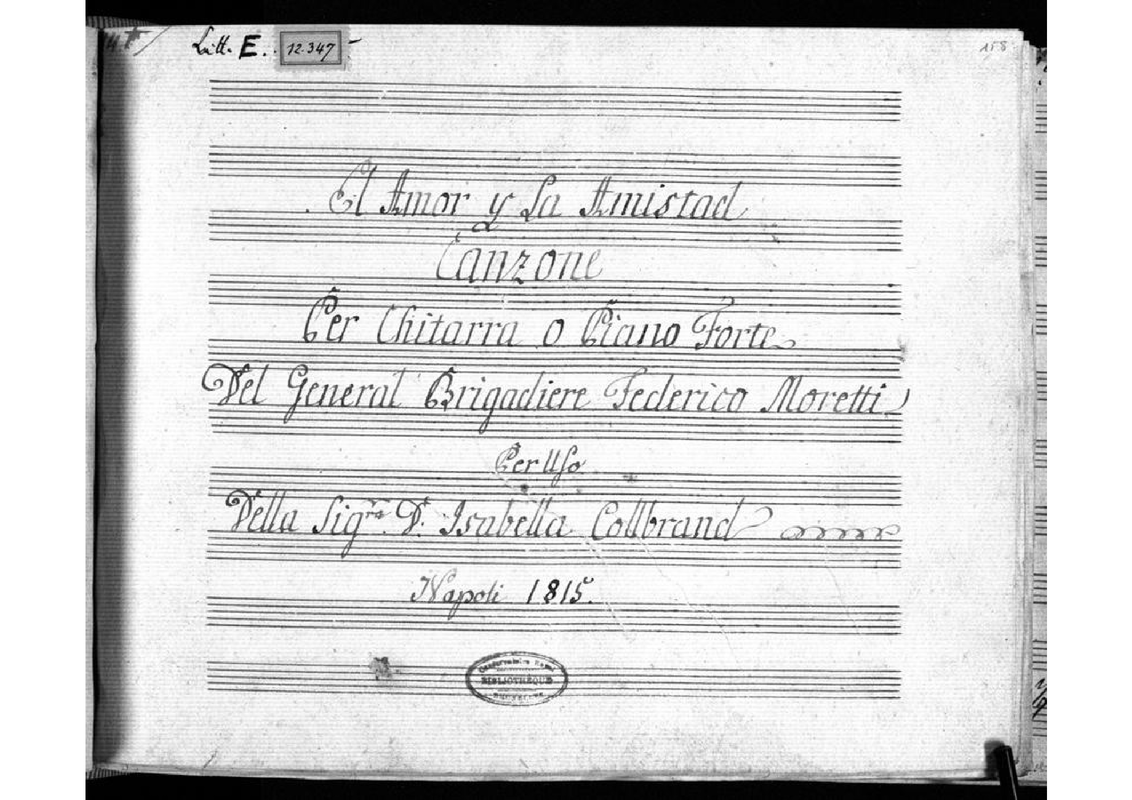 Litt. E. 12.347
158
El Amor y La Amistad
Canzone
Per Chitarra o Piano Forte
Del General Brigadiere Federico Moretti
Per Uso
Della Sigra. D. Isabella Collbrand
Napoli 1815.
Conservatoire Royal
BIBLIOTHÈQUE
BRUXELLES